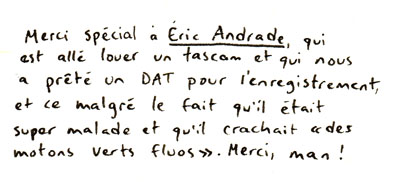 Merci spécial à Éric Andrade, qui
est allé louer un tascam et qui nous
a prêté un DAT pour l'enregistrement,
et ce malgré le fait qu'il était
super malade et qu'il crachait «des
motons verts fluos». Merci, man !